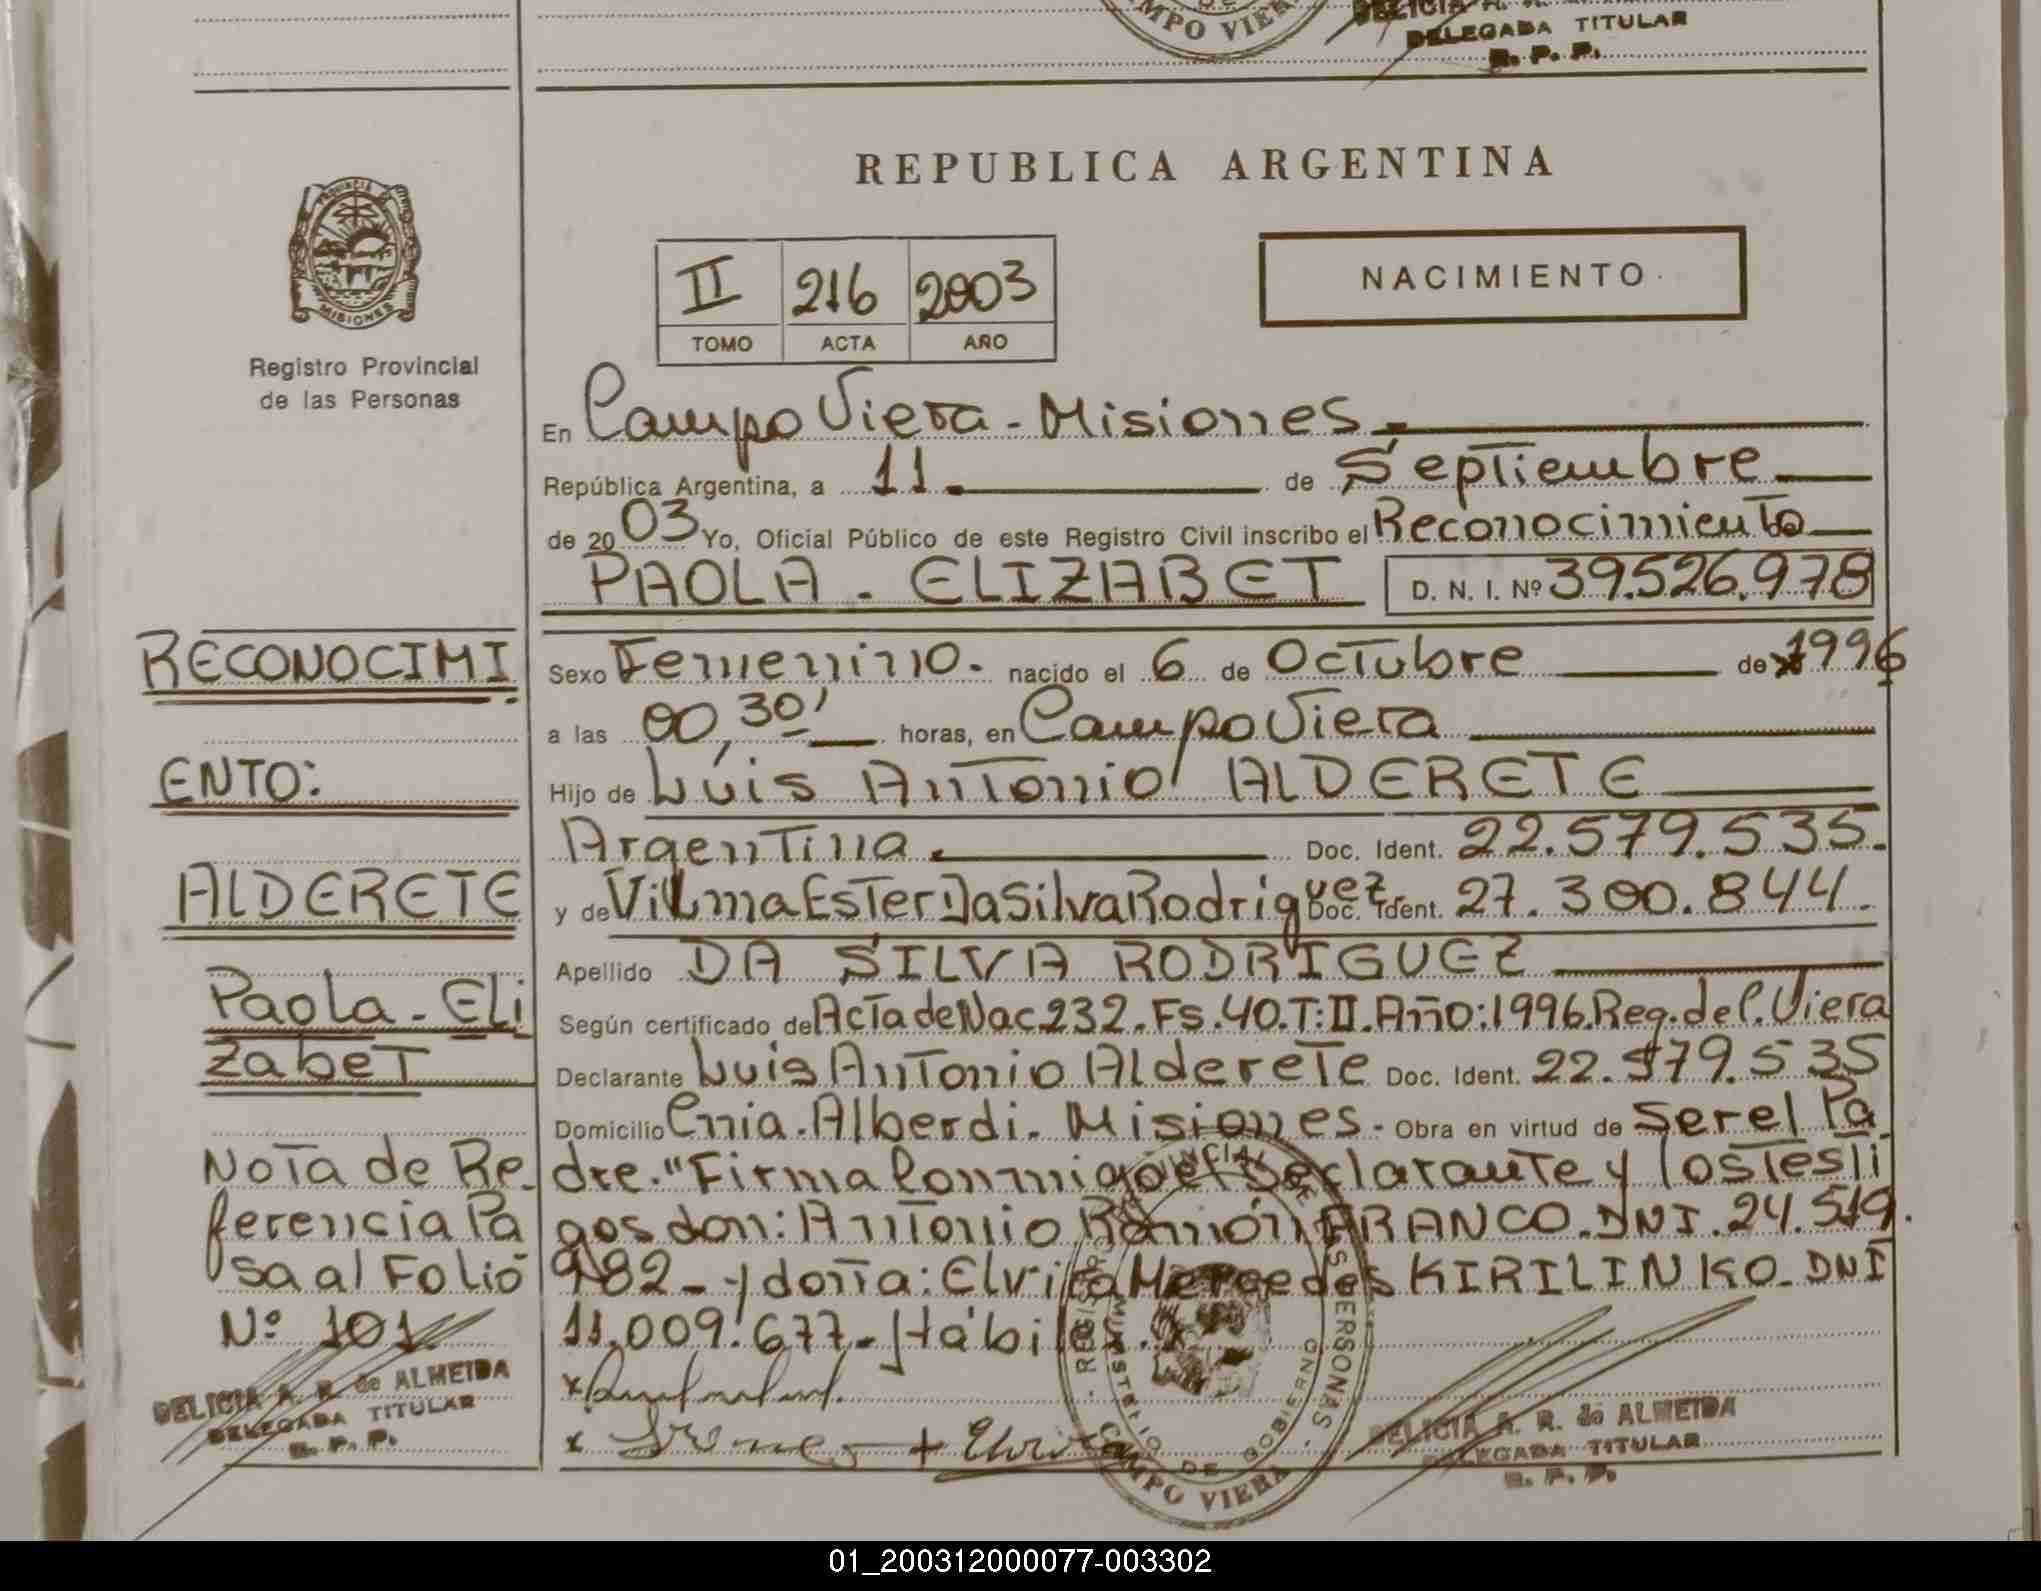 CAMPO VIERA
DELEGADA TITULAR
R. P. P.
REPUBLICA ARGENTINA
PROVINCIA
MISIONES
Registro Provincial
de las Personas
II 216 2003
TOMO ACTA AÑO
NACIMIENTO
En Campo Viera - Misiones
República Argentina, a 11 de Septiembre
de 2003 Yo, Oficial Público de este Registro Civil inscribo el Reconocimiento
PAOLA - ELIZABET D. N. I. Nº 39.526.978
RECONOCIMI
ENTO:
ALDERETE
Paola - Eli
zabet
Nota de Re_
ferencia Pa
sa al Folio
Nº 101
DELICIA A. R. de ALMEIDA
DELEGADA TITULAR
R. P. P.
Sexo Femenino. nacido el 6 de Octubre de 1996
a las 00,30' horas, en Campo Viera
Hijo de Luis Antonio ALDERETE
Argentina Doc. Ident. 22.579.535.
y de Vilma Ester Da Silva Rodriguez Doc. Ident. 27.300.844.
Apellido DA SILVA RODRIGUEZ
Según certificado de Acta de Nac 232. Fs. 40. T: II. Año: 1996. Reg. de C. Viera
Declarante Luis Antonio Alderete Doc. Ident. 22.579.535
Domicilio Cnia. Alberdi. Misiones. Obra en virtud de Ser el Pa_
dre. "Firma Conmigo el Declarante y los Testi
gos don: Antonio Ramón FRANCO. DNI. 24.519.
982 - y doña: Elvira Mercedes KIRILINKO. DNI
11.009.677 - Hábiles.
x
x + Elvira
REGISTRO PROVINCIAL DE LAS PERSONAS
MINISTERIO DE GOBIERNO
CAMPO VIERA
DELICIA A. R. de ALMEIDA
DELEGADA TITULAR
R. P. P.
01_200312000077-003302